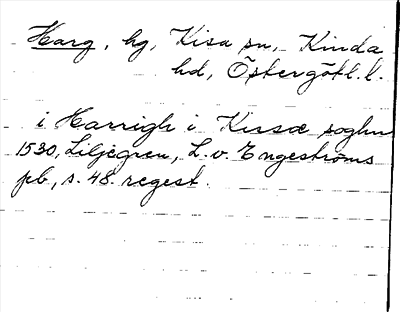 Harg, hg, Kisa sn, Kinda
hd, Östergötl. l.
i Harrigh i Kirsæ soghn
1530, Liljegren, L. v. Engeströms
pb, s. 48. regest.